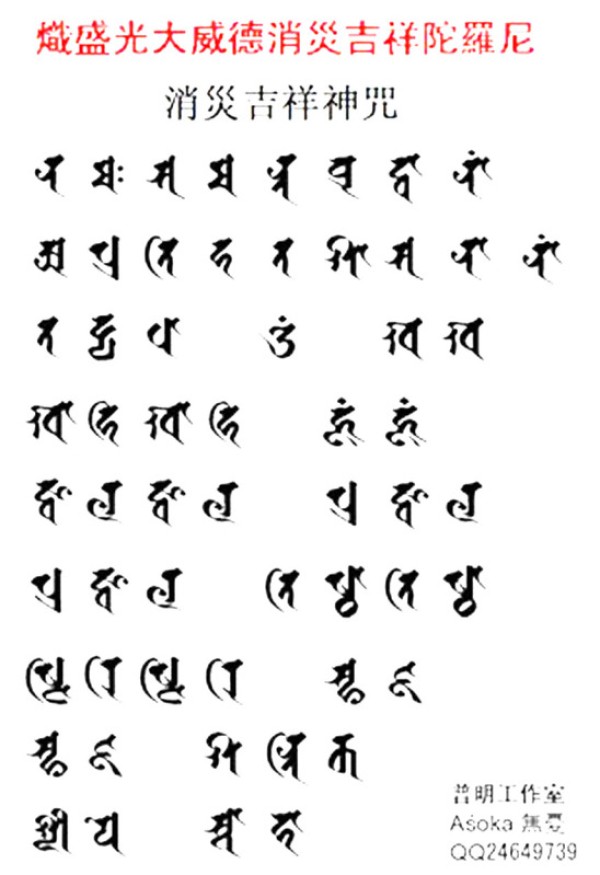 熾盛光大威德消災吉祥陀羅尼
消災吉祥神咒
𑖡 𑖦𑖾 𑖭 𑖦 𑖡𑖿𑖝 𑖤𑖲 𑖟𑖿𑖠𑖯 𑖡𑖯𑖽
𑖀 𑖢𑖿𑖨 𑖝𑖰 𑖮 𑖝 𑖫𑖯 𑖭 𑖡𑖯 𑖡𑖯𑖽
𑖝 𑖟𑖿𑖧 𑖞𑖯 𑖌𑖼 𑖏 𑖏
𑖏𑖯 𑖮𑖰 𑖏𑖯 𑖮𑖰 𑖮𑖳𑖽 𑖮𑖳𑖽
𑖕𑖿𑖪𑖯 𑖩 𑖕𑖿𑖪𑖯 𑖩 𑖢𑖿𑖨 𑖕𑖿𑖪𑖯 𑖩
𑖢𑖿𑖨 𑖕𑖿𑖪𑖯 𑖩 𑖝𑖰 𑖬𑖿𑖙 𑖝𑖰 𑖬𑖿𑖙
𑖬𑖿𑖘𑖰 𑖨𑖰 𑖬𑖿𑖘𑖰 𑖨𑖰 𑖭𑖿𑖣 𑖘
𑖭𑖿𑖣 𑖘 𑖫𑖯 𑖡𑖿𑖝𑖰 𑖎
𑖫𑖿𑖨𑖱 𑖧𑖸 𑖭𑖿𑖪𑖯 𑖮𑖯
普明工作室
Aśoka 無憂
QQ24649739